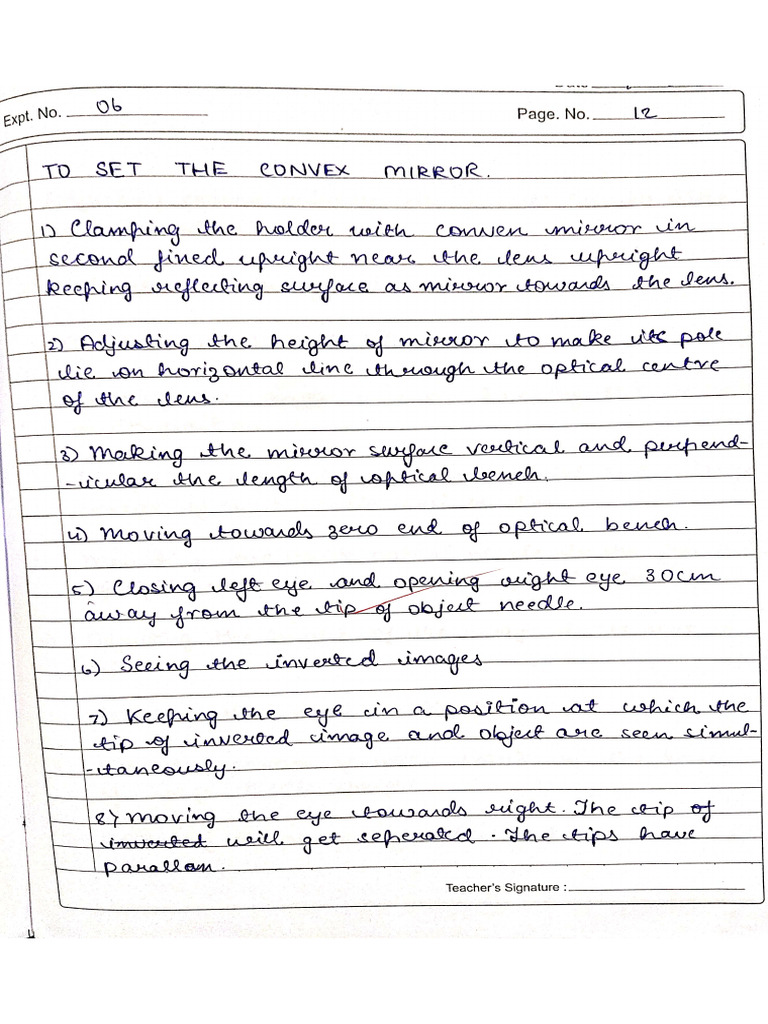 Expt. No. 06
Page. No. 12
TO SET THE CONVEX MIRROR.
1) Clamping the holder with convex mirror in
second fixed upright near the lens upright
keeping reflecting surface as mirror towards the lens.
2) Adjusting the height of mirror to make its pole
lie on horizontal line through the optical centre
of the lens.
3) Making the mirror surface vertical and perpend-
-icular the length of optical bench.
4) Moving towards zero end of optical bench.
5) Closing left eye and opening right eye 30cm
away from the tip of object needle.
6) Seeing the inverted images
7) Keeping the eye in a position at which the
tip of inverted image and object are seen simul-
-taneously.
8) Moving the eye towards right. The tip of
inverted will get seperated. The tips have
parallax.
Teacher's Signature :